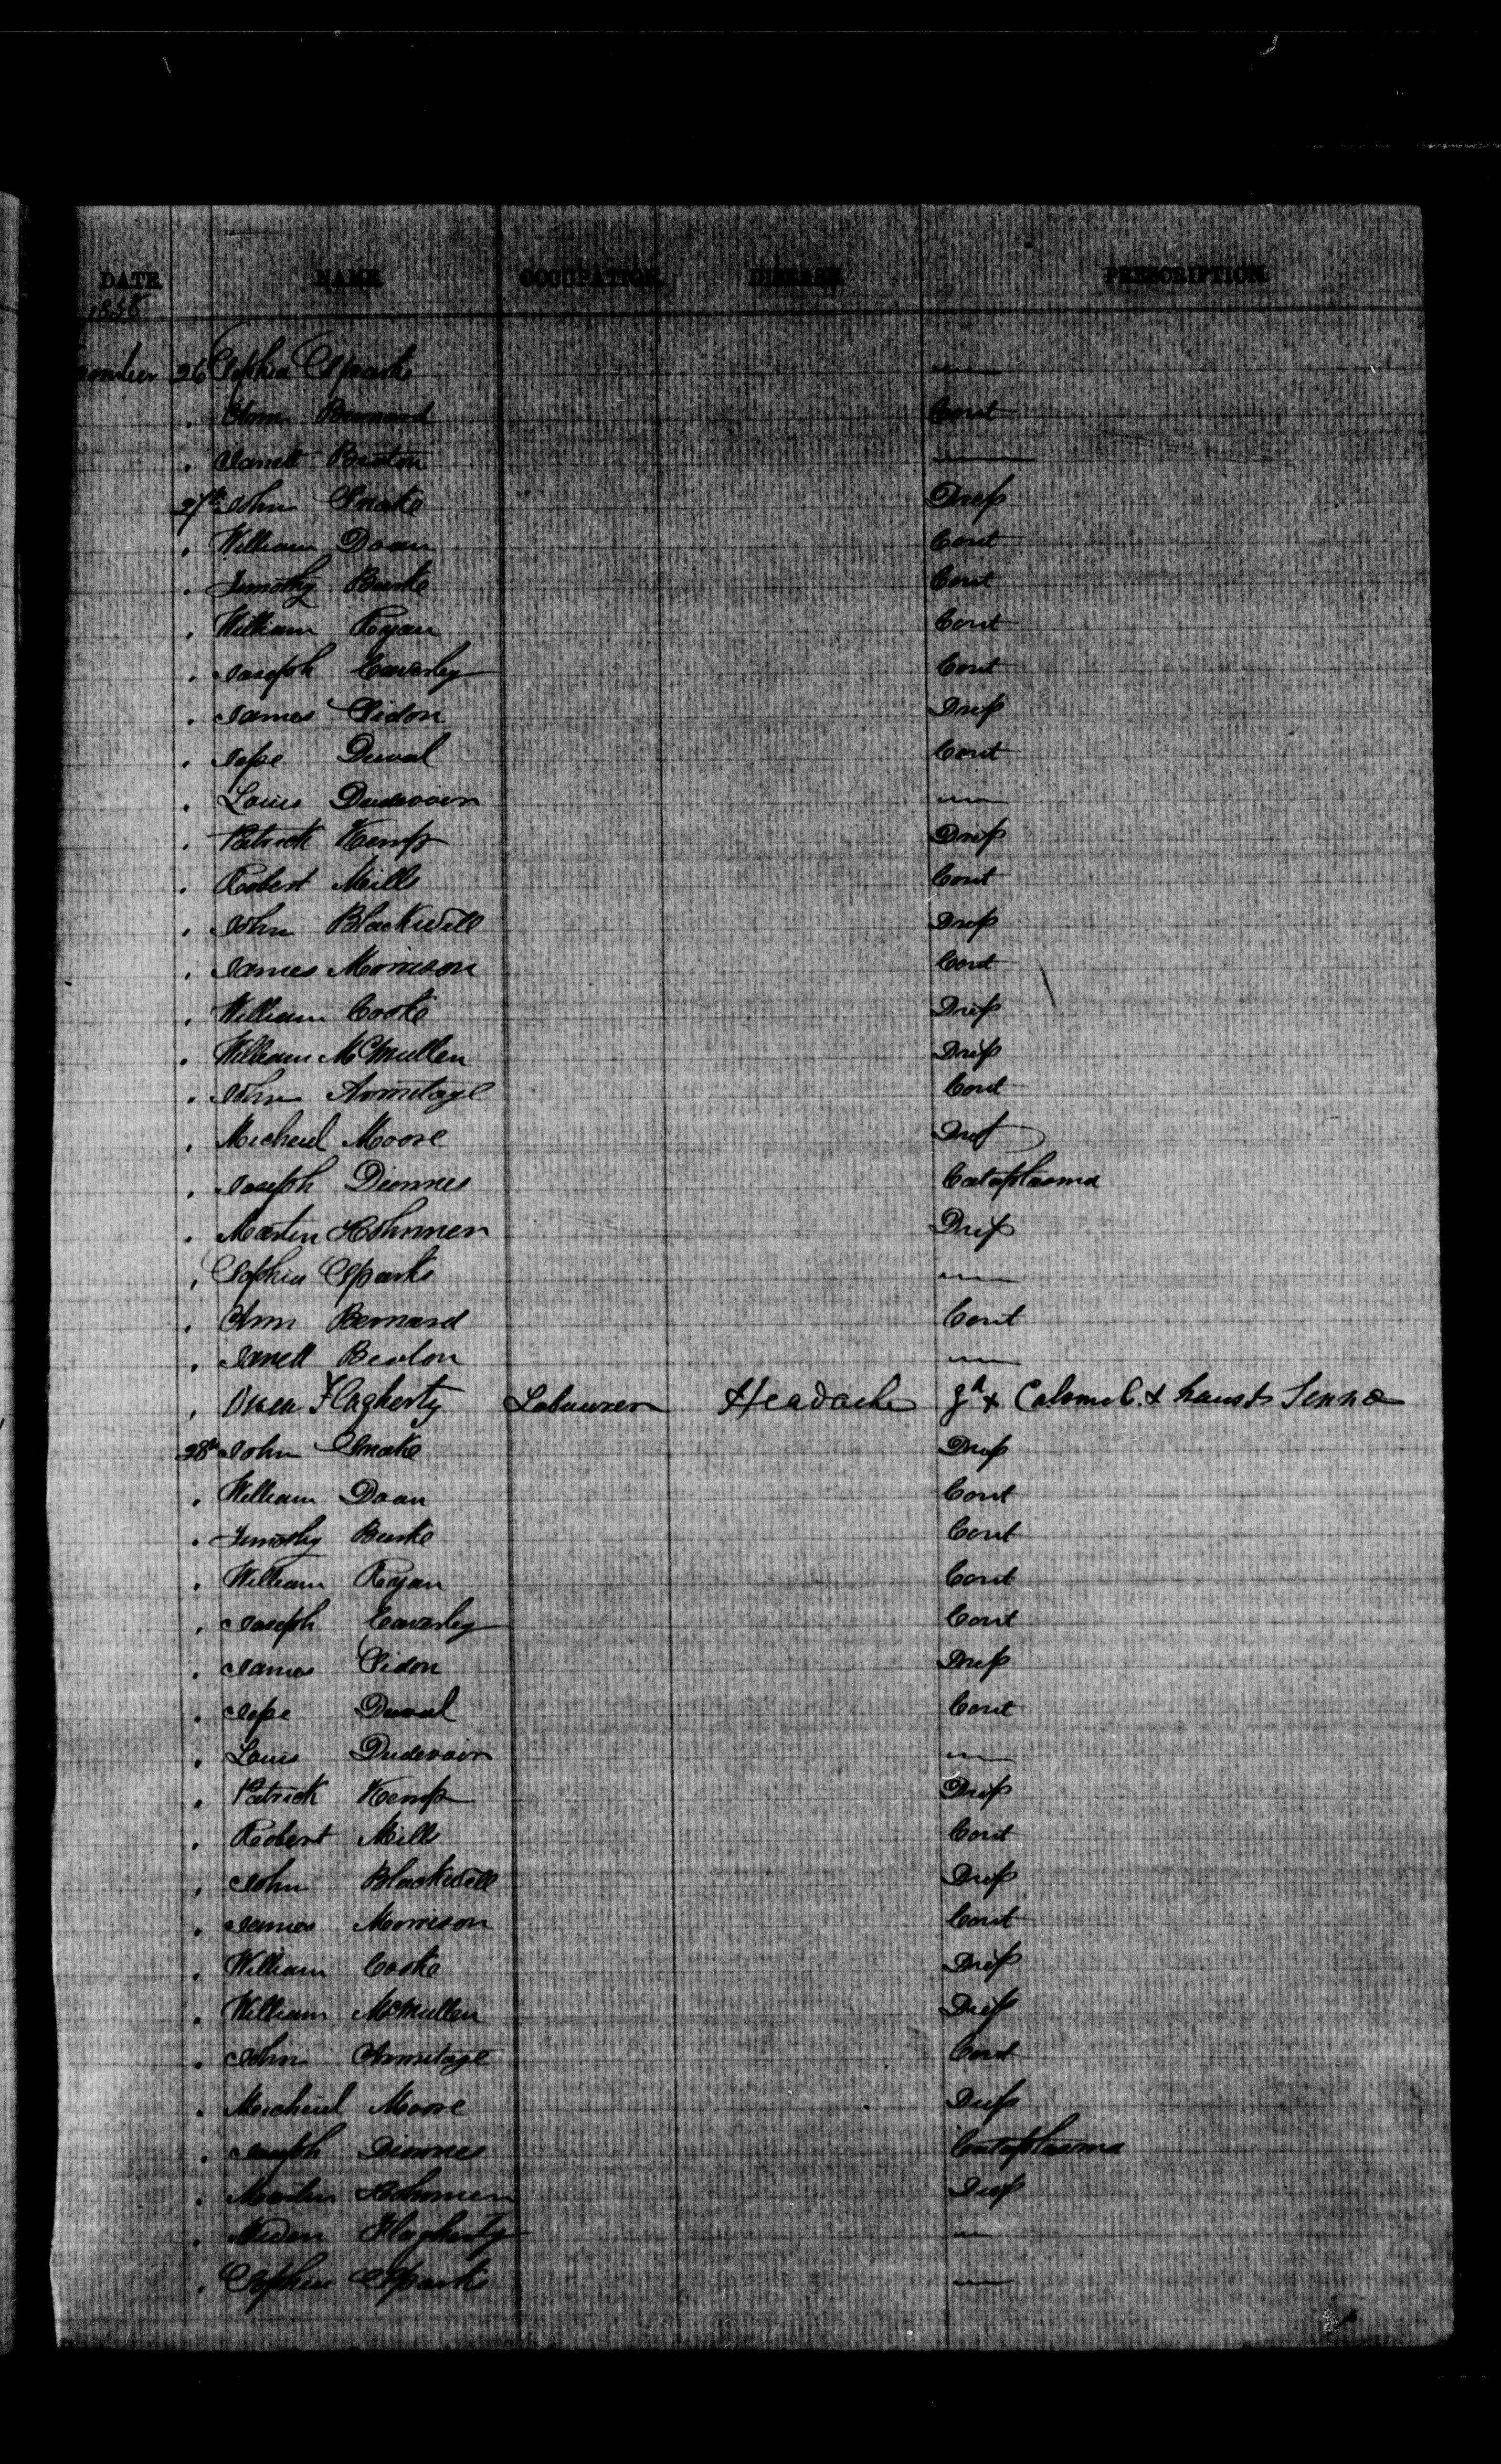 DATE NAME OCCUPATION DISEASE PRESCRIPTION
1858
26 Sophia Sparks —
" Ann Bernard Cont
" Janett Beaton —
27th John Snake Drep
" William Doan Cont
" Timothy Burke Cont
" William Ryan Cont
" Joseph Caverley Cont
" James Sidon Drep
" Jope Duval Cont
" Louis Dudevoir —
" Patrick Kemp Drep
" Robert Mills Cont
" John Blackwell Drep
" James Morrison Cont
" William Cooke Drep
" William McMullen Drep
" John Armitage Cont
" Micheul Moore Drep
" Joseph Dionnes Cataplasma
" Martin Hohnmen Drep
" Sophia Sparks —
" Ann Bernard Cont
" Janett Beaton —
" Owen Flagherty Labourer Headache Calomel & haust Senna
28th John Snake Drep
" William Doan Cont
" Timothy Burke Cont
" William Ryan Cont
" Joseph Caverley Cont
" James Sidon Drep
" Jope Duval Cont
" Louis Dudevoir —
" Patrick Kemp Drep
" Robert Mills Cont
" John Blackwell Drep
" James Morrison Cont
" William Cooke Drep
" William McMullen Drep
" John Armitage Cont
" Micheul Moore Drep
" Joseph Dionnes Cataplasma
" Martin Hohnmen Drep
" Owen Flagherty —
" Sophia Sparks —